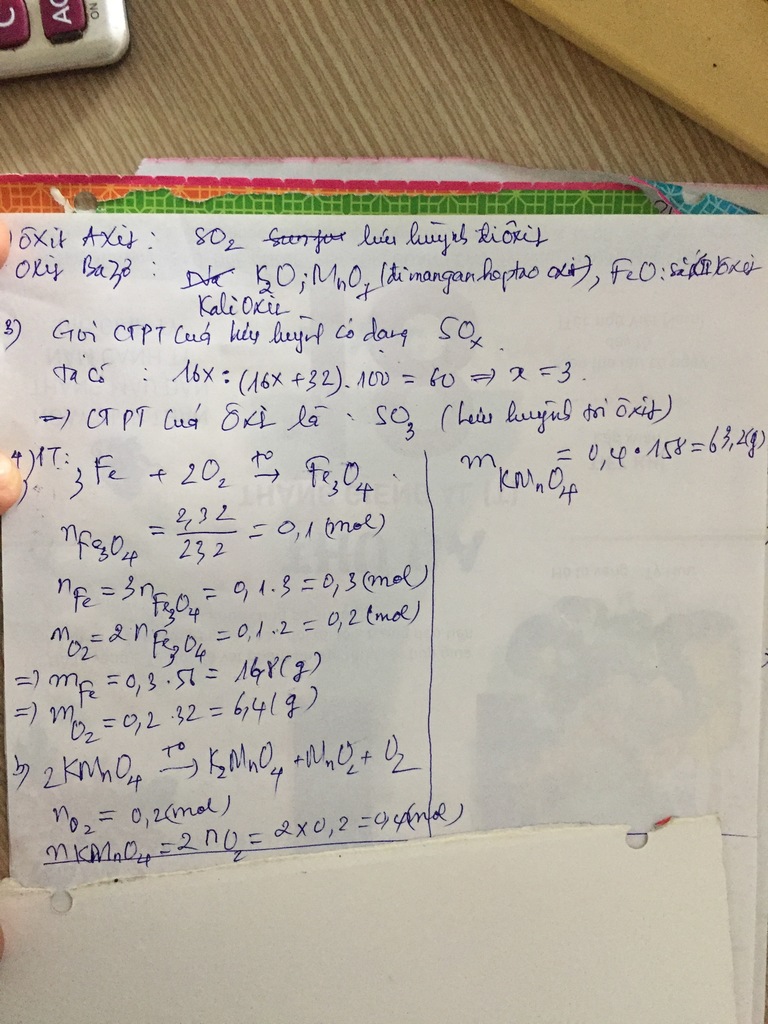 Ôxit Axit : SO2 lưu huỳnh điôxit
Oxit Bazơ : K2O; Mn2O7 (đimangan heptao oxit), FeO: sắt II Ôxit
Kali Oxit
3) Gọi CTPT của lưu huỳnh có dạng SOx
Ta có : 16x : (16x + 32) . 100 = 60 ⇒ x = 3.
⇒ CTPT của Ôxit là : SO3 (lưu huỳnh tri ôxit)
4) PT: 3Fe + 2O2 →(T°) Fe3O4
nFe3O4 = 2,32/232 = 0,1 (mol)
nFe = 3nFe3O4 = 0,1.3 = 0,3 (mol)
nO2 = 2nFe3O4 = 0,1.2 = 0,2 (mol)
⇒ mFe = 0,3.56 = 16,8 (g)
⇒ mO2 = 0,2.32 = 6,4 (g)
b) 2KMnO4 →(T°) K2MnO4 + MnO2 + O2
nO2 = 0,2 (mol)
nKMnO4 = 2nO2 = 2x0,2 = 0,4 (mol)
mKMnO4 = 0,4.158 = 63,2 (g)
ON
C